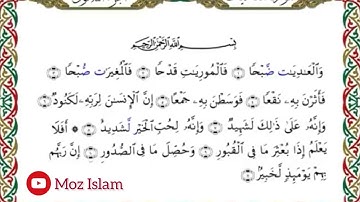 بِسْمِ ٱللَّهِ ٱلرَّحْمَٰنِ ٱلرَّحِيمِ
وَٱلْعَـٰدِيَـٰتِ ضَبْحًا ۝ فَٱلْمُورِيَـٰتِ قَدْحًا ۝ فَٱلْمُغِيرَٰتِ صُبْحًا ۝
فَأَثَرْنَ بِهِۦ نَقْعًا ۝ فَوَسَطْنَ بِهِۦ جَمْعًا ۝ إِنَّ ٱلْإِنسَـٰنَ لِرَبِّهِۦ لَكَنُودٌ ۝
وَإِنَّهُۥ عَلَىٰ ذَٰلِكَ لَشَهِيدٌ ۝ وَإِنَّهُۥ لِحُبِّ ٱلْخَيْرِ لَشَدِيدٌ ۝ ۞ أَفَلَا
يَعْلَمُ إِذَا بُعْثِرَ مَا فِى ٱلْقُبُورِ ۝ وَحُصِّلَ مَا فِى ٱلصُّدُورِ ۝ إِنَّ رَبَّهُم
بِهِمْ يَوْمَئِذٍ لَّخَبِيرٌۢ ۝
Moz Islam